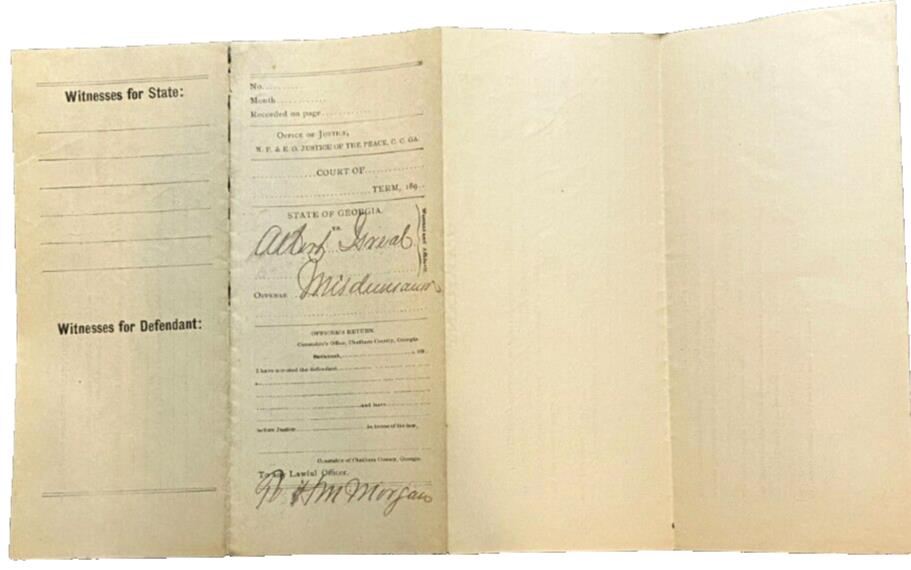 Witnesses for State:
Witnesses for Defendant:
No.
Month
Recorded on page
OFFICE OF JUSTICE,
N. P. & E. O. JUSTICE OF THE PEACE, C. C. GA.
COURT OF
TERM, 189
STATE OF GEORGIA
vs.
Albert
Warrant and Affidavit
OFFENSE Misdumeanor
OFFICER'S RETURN.
Constable's Office, Chatham County, Georgia
Savannah, 189
I have arrested the defendant
and have
before Justice in terms of the law,
Constable of Chatham County, Georgia.
To any Lawful Officer.
M Morgan